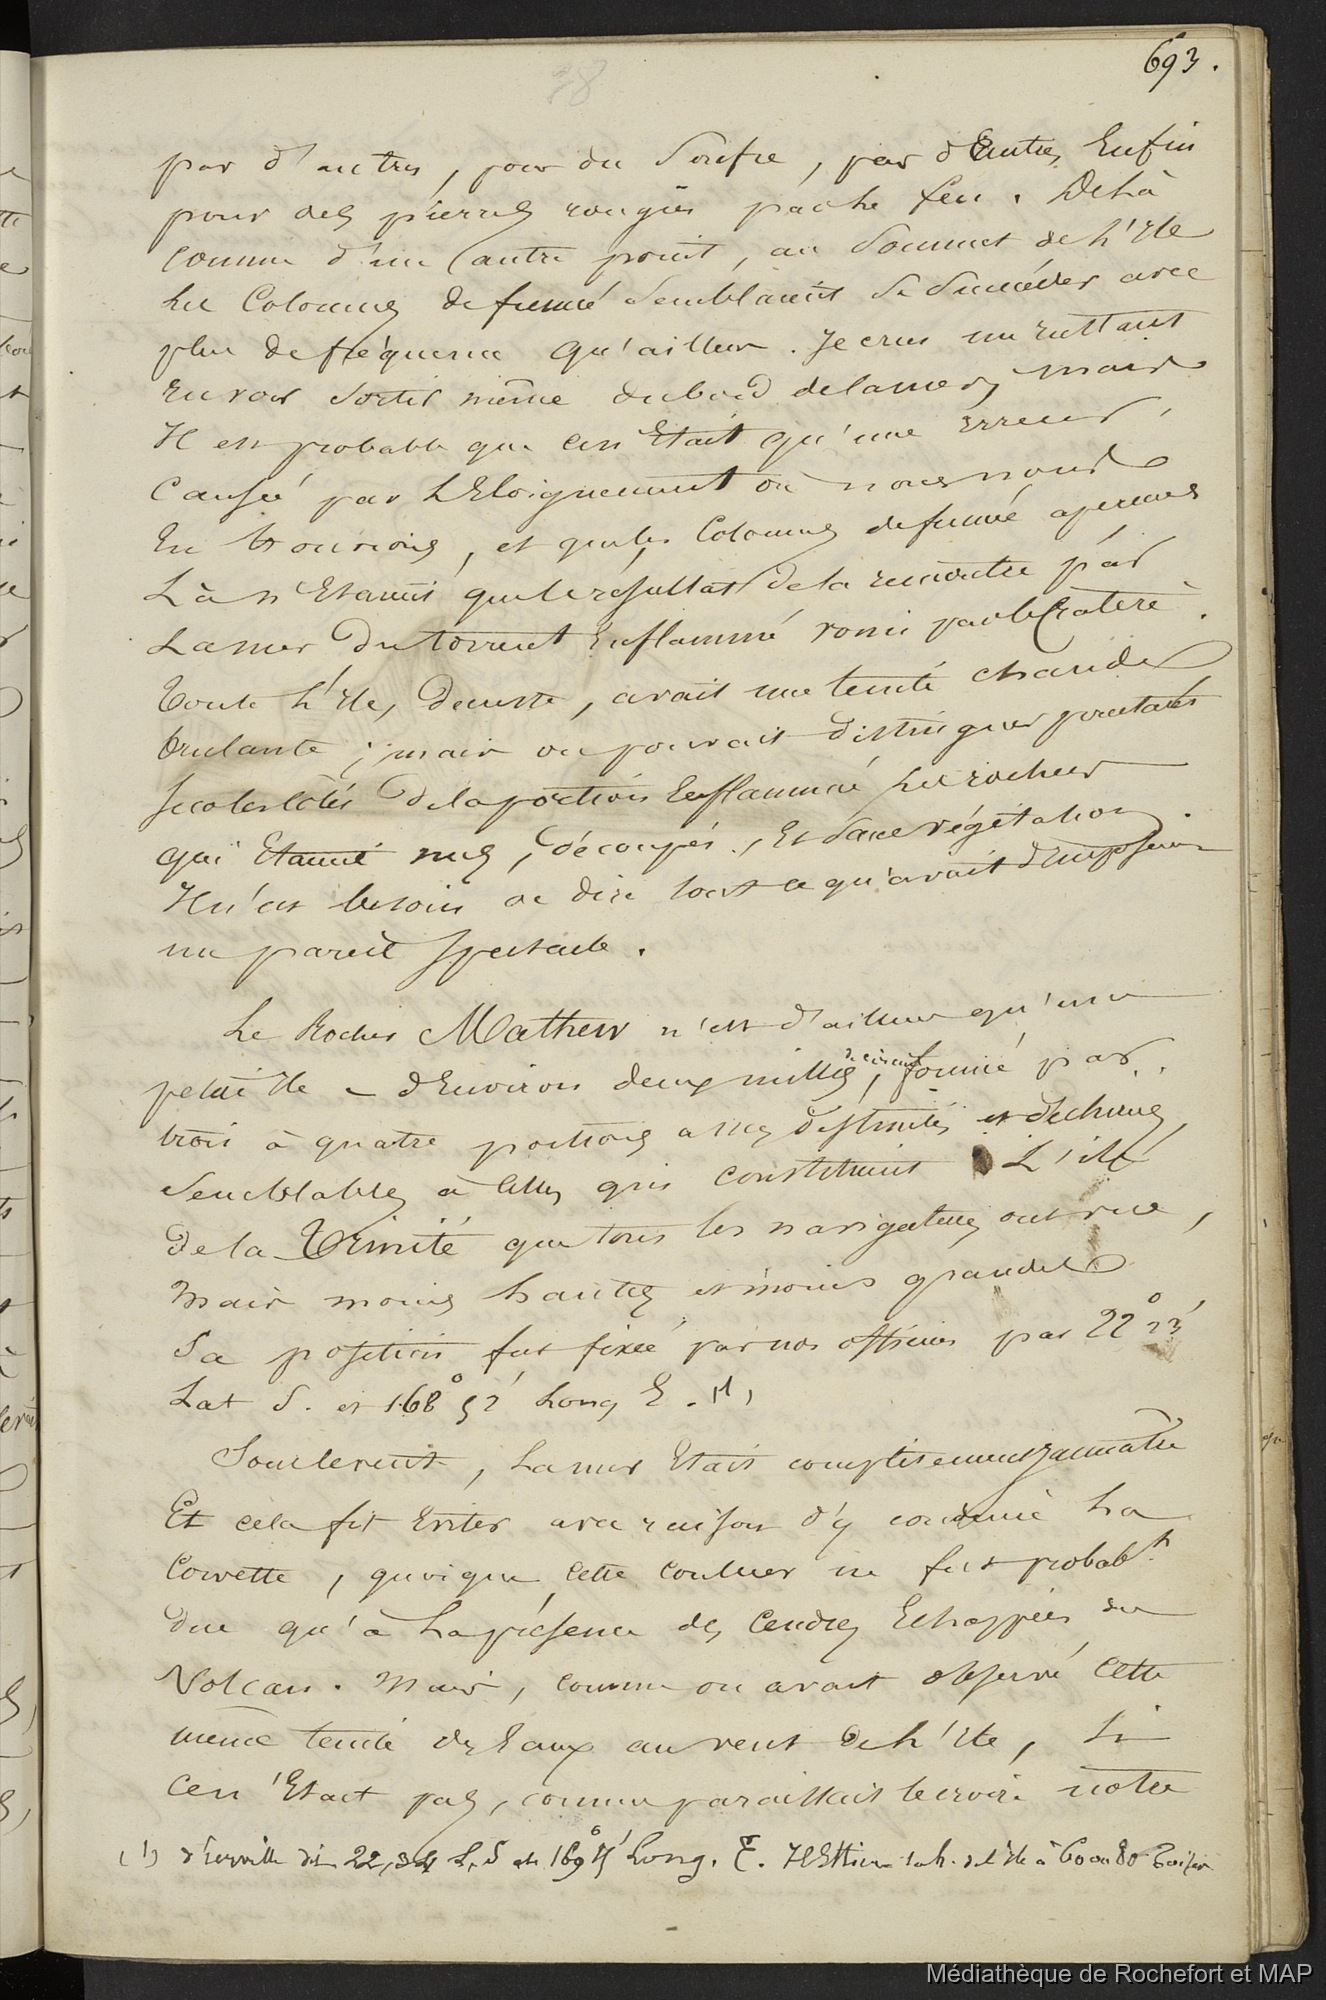 693.
38
par d'autres, pour du Soufre, par d'Autres, Enfin
pour des pierres rougies par le feu. De là
comme d'un autre point, au Sommet de l'Ile
les Colonnes de fumée Semblaient Se Succéder avec
plus de fréquence qu'ailleurs. Je crus un instant
En voir Sortir même du bord de la mer, mais
Il est probable que ce n'Etait qu'une Erreur,
Causée par l'Eloignement où nous nous
En trouvions, et que les Colonnes de fumée aperçues
Là n'Etaient que le résultat de la rencontre par
La mer du torrent Enflammé vomi par le Cratère.
Toute l'Ile, du reste, avait une teinte chaude
brulante ; mais on pouvait distinguer pourtant
Sur les côtés de la portion Enflammée les rochers
qui Etaient nus, découpés, Et Sans végétation.
Il n'est besoin de dire tout ce qu'avait d'imposant
un pareil Spectacle.
Le Rocher Mathew n'est d'ailleurs qu'une
petite Ile d'Environ deux milles de circuit, formée par
trois à quatre portions assez distinctes et déchirées,
Semblables à Celles qui constituent L'ile
De la Trinité que tous les navigateurs ont vue,
Mais moins hautes et moins grandes
Sa position fut fixée par nos officiers par 22° 23'
Lat S. et 168° 52' Long E. (1)
Sous le vent, La mer Etait complètement jaunatre
Et cela fit Eviter avec raison d'y conduire La
Corvette, quoique cette couleur ne fut probabt.
Due qu'à La présence des Cendres Echappées du
Volcan. Mais, comme on avait observé cette
même teinte des Eaux au vent de l'Ile, Si
Ce n'Etait pas, comme paraissait le croire notre
(1) d'Urville dit 22,24 L. S et 169° Long. E. Il Estime la h. de l'Ile à 60 ou 80 Toises
Médiathèque de Rochefort et MAP